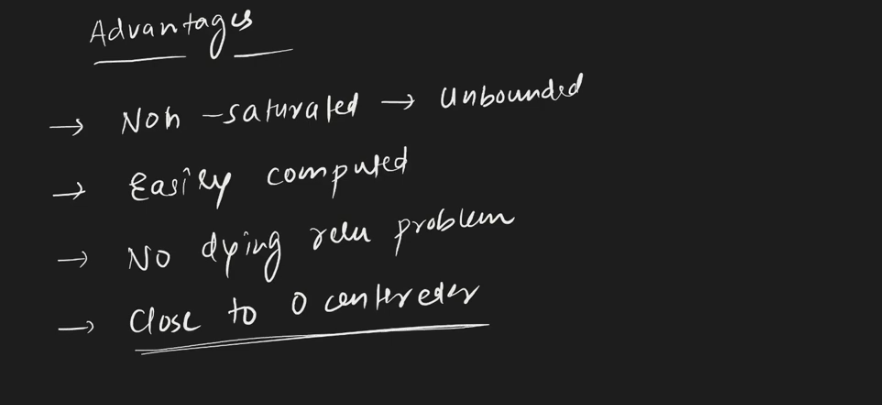 Advantages
→ Non-saturated → Unbounded
→ Easily computed
→ No dying relu problem
→ Close to 0 centered